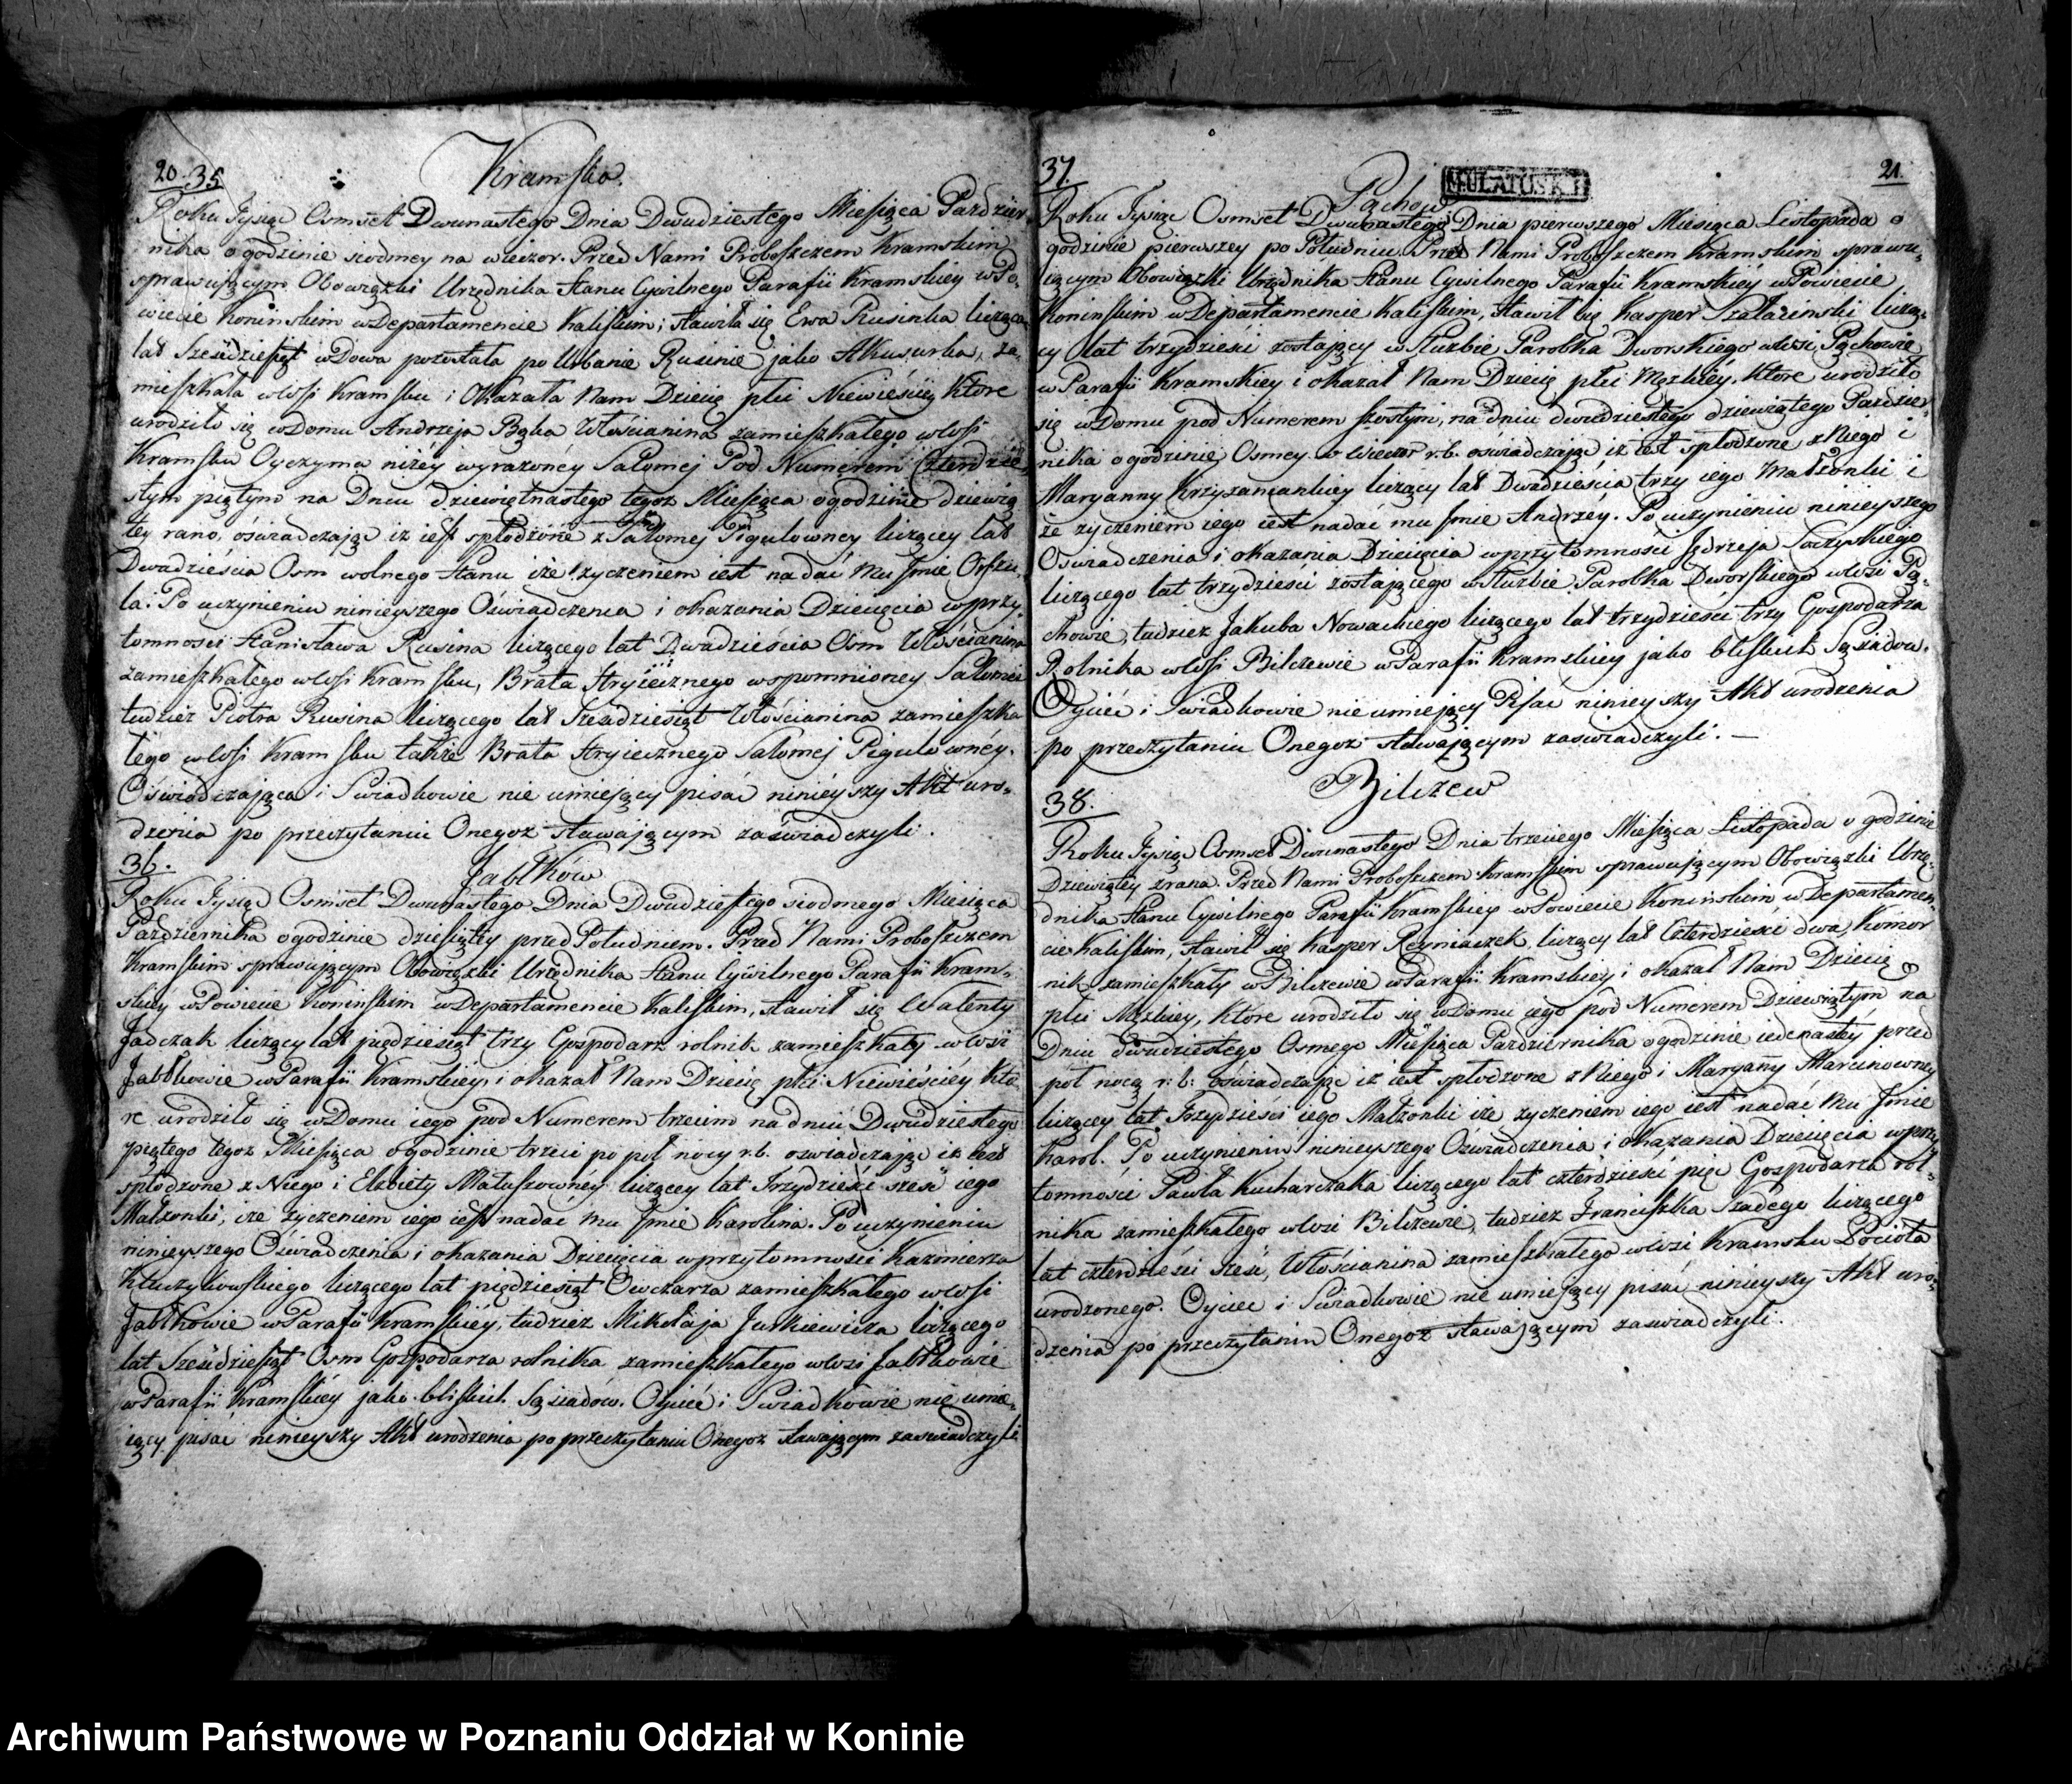 20. 35
Kramsko.
Roku Tysiąc Osmset Dwunastego Dnia Dwudziestego Miesiąca Pazdzier
nika o godzinie siodmey na wieczor. Przed Nami Proboszczem Kramskim
sprawuiącym Obowiązki Urzędnika Stanu Cywilnego Parafii Kramskiey w Po-
wiecie Koninskim w Departamencie Kaliskim; stawiła się Ewa Rusinka licząca
lat Sześdziesiąt wdowa pozostała po Urbanie Rusinie jako Akuszerka, za-
mieszkała w wsi Kramsku i Okazała Nam Dziecię płci Niewieściey które
urodziło się w Domu Andrzeja Bąka Włościanina zamieszkałego w wsi
Kramsku Oyczyma niżéy wyrazonéy Salomej Pod Numerem Czterdzie
stym piątym na Dniu dziewiętnastego tegoz Miesiąca o godzinie dziewią
tey rano, oświadczając iz iest spłodzone z Salomej Pigułowney liczącey lat
Dwadzieścia Osm wolnego Stanu i że życzeniem iest nadać Mu Jmie Orszu-
la. Po uczynieniu ninieyszego Oświadczenia i okazania Dziecięcia w przy-
tomnosci Stanisława Rusina liczącego lat Dwadzieścia Osm Włościanina
zamieszkałego w wsi Kramsku, Brata Stryiecznego wspomnioney Salomei
tudzież Piotra Rusina liczącego lat Sześdziesiąt Włościanina zamieszka
łego w wsi Kramsku także Brata Stryiecznego Salomej Pigułównéy.
Oświadczająca i Swiadkowie nie umieiący pisać ninieyszy Akt uro-
dzenia po przeczytaniu Onegoz stawaiącym zaświadczyli.
36.
Jabłków
Roku Tysiąc Osmset Dwunastego Dnia Dwudziestego siodmego Miesiąca
Października o godzinie dziesiątey przed Południem. Przed Nami Proboszczem
Kramskim sprawuiącym Obowiązki Urzędnika Stanu Cywilnego Parafii Kram-
skiéy w Powiecie Koninskim w Departamencie Kaliskim, stawił się Walenty
Jadczak liczący lat pięddziesiąt trzy Gospodarz rolnik zamieszkały w wsi
Jabłkowie w Parafii Kramskiey, i okazał Nam Dziecię płci Niewieściéy któ
re urodziło się w Domu iego pod Numerem trzecim na dniu Dwudziestego
piątego tegoz Miesiąca o godzinie trzeci po pół nocy r.b. oswiadczając iz iest
spłodzone z Niego i Elzbiety Matuszownéy liczącey lat Trzydzieści sześć iego
Małzonki, i że życzeniem iego iest nadać mu Jmie Karolina. Po uczynieniu
ninieyszego Oświadczenia i okazania Dziecięcia w przytomności Kazimierza
Kluczykowskiego liczącego lat pięddziesiąt Owczarza zamieszkałego w wsi
Jabłkowie w Parafii Kramskiéy, tudziez Mikołaja Jurkiewicza liczącego
lat Sześdziesiąt Osm Gospodarza rolnika zamieszkałego w wsi Jabłkowie
w Parafii Kramskiéy jako bliskich Sąsiadów. Oyciéc i Swiadkowie nie umie-
iący pisać ninieyszy Akt urodzenia po przeczytaniu Onegoz stawaiącym zaswiadczyli
37.
21.
Pąchow
Roku Tysiąc Osmset Dwunastego Dnia pierwszego Miesiąca Listopada o
godzinie pierwszey po Południu. Przed Nami Proboszczem Kramskim sprawu-
iącym Obowiązki Urzędnika Stanu Cywilnego Parafii Kramskiéy w Powiecie
Koninskim w Departamencie Kaliskim, stawił się Kasper liczą-
cy lat trzydzieści zostający w służbie Parobka Dworskiego w wsi Pąchowie
w Parafii Kramskiey i okazał Nam Dziecię płci Męzkiéy, które urodziło
się w Domu pod Numerem szostym, na dniu dwudziestego dziewiątego Pazdzier-
nika o godzinie Osmey w wieczor r.b. oświadczając iz iest spłodzone z Niego i
Maryanny liczący lat Dwadzieścia trzy iego Małżonki i
że zyczeniem iego iest nadać mu Jmie Andrzéy. Po uczynieniu ninieyszego
Oświadczenia i okazania Dziecięcia w przytomności Jędrzeja
liczącego lat trzydzieści zostającego w służbie Parobka Dworskiego w wsi Pą-
chowie, tudziez Jakuba Nowackiego liczącego lat trzydzieści trzy Gospodarza
Rolnika w wsi Bilczewie w Parafii Kramskiey jako bliskich Sąsiadow.
Oyciéc i Swiadkowie nieumiejący Pisać ninieyszy Akt urodzenia
po przeczytaniu Onegoz stawającym zaswiadczyli. —
Bilczew
38.
Roku Tysiąc Osmset Dwunastego Dnia trzeciego Miesiąca Listopada o godzinie
Dziewiątéy zrana. Przed Nami Proboszczem Kramskim sprawującym Obowiązki Urzę-
dnika Stanu Cywilnego Parafii Kramskiey w Powiecie Koninskim w Departamen-
cie Kaliskim, stawił się Kasper Reyniaczek, liczący lat Czterdzieści dwa, Komor
nik zamieszkały w Bilczewie w Parafii Kramskiey i okazał Nam Dziecię
płci Męzkiey, które urodziło się w Domu iego pod Numerem Dziewiątym na
Dniu dwudziestego Osmego Miesiąca Pazdziernika o godzinie iedenastéy przed
poł nocą r: b: oświadczając iz iest spłodzone z Niego i Maryanny Marcinowney
liczącey lat Trzydzieści iego Małzonki i że zyczeniem iego iest nadać mu Jmie
Karol. Po uczynieniu ninieyszego Oświadczenia i okazania Dziecięcia w przy
tomności Pawła Kucharczaka liczącego lat czterdzieści pięć Gospodarza rol-
nika zamieszkałego w wsi Bilczewie, tudziez Franciszka Szadego liczącego
lat czterdzieści sześć, Włościanina zamieszkałego w wsi Kramsku
urodzonego. Oyciec i Swiadkowie nie umiejący pisać ninieyszy Akt uro-
dzenia po przeczytaniu Onegoz stawającym zaswiadczyli.
Archiwum Państwowe w Poznaniu Oddział w Koninie